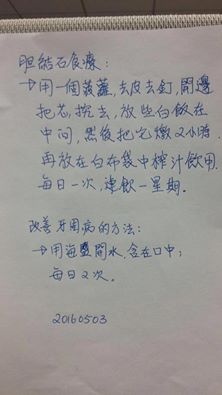 胆結石食療：
→用一個菠蘿，去皮去釘，開邊
把芯，挖去，放些白飯在
中间，然後把它燉2小時
再放在白布袋中榨汁飲用.
每日一次，連飲一星期.
改善牙周病的方法：
→用海鹽開水，含在口中；
每日2次.
20160503